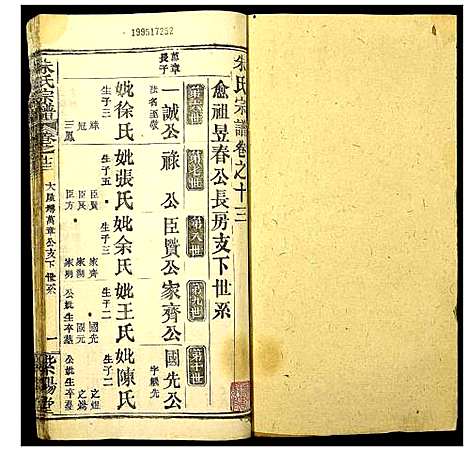 199517252
朱氏宗譜卷之十三
愈祖昱春公長房支下世系
第六世
第七世
第八世
第九世
第十世
萬章長子
一誠公
法名
祿公
臣賢公
家齊公
國先公
字
妣徐氏
妣張氏
妣余氏
妣王氏
妣陳氏
生子三
生子五
生子三
生子二
生子二
祿
冠
三鳳
臣賢
臣民
臣方
家齊
家明
國先
國元
公妣生卒墓
公妣生卒
朱氏宗譜
卷之十三
萬章公支下世系
一
紫陽堂